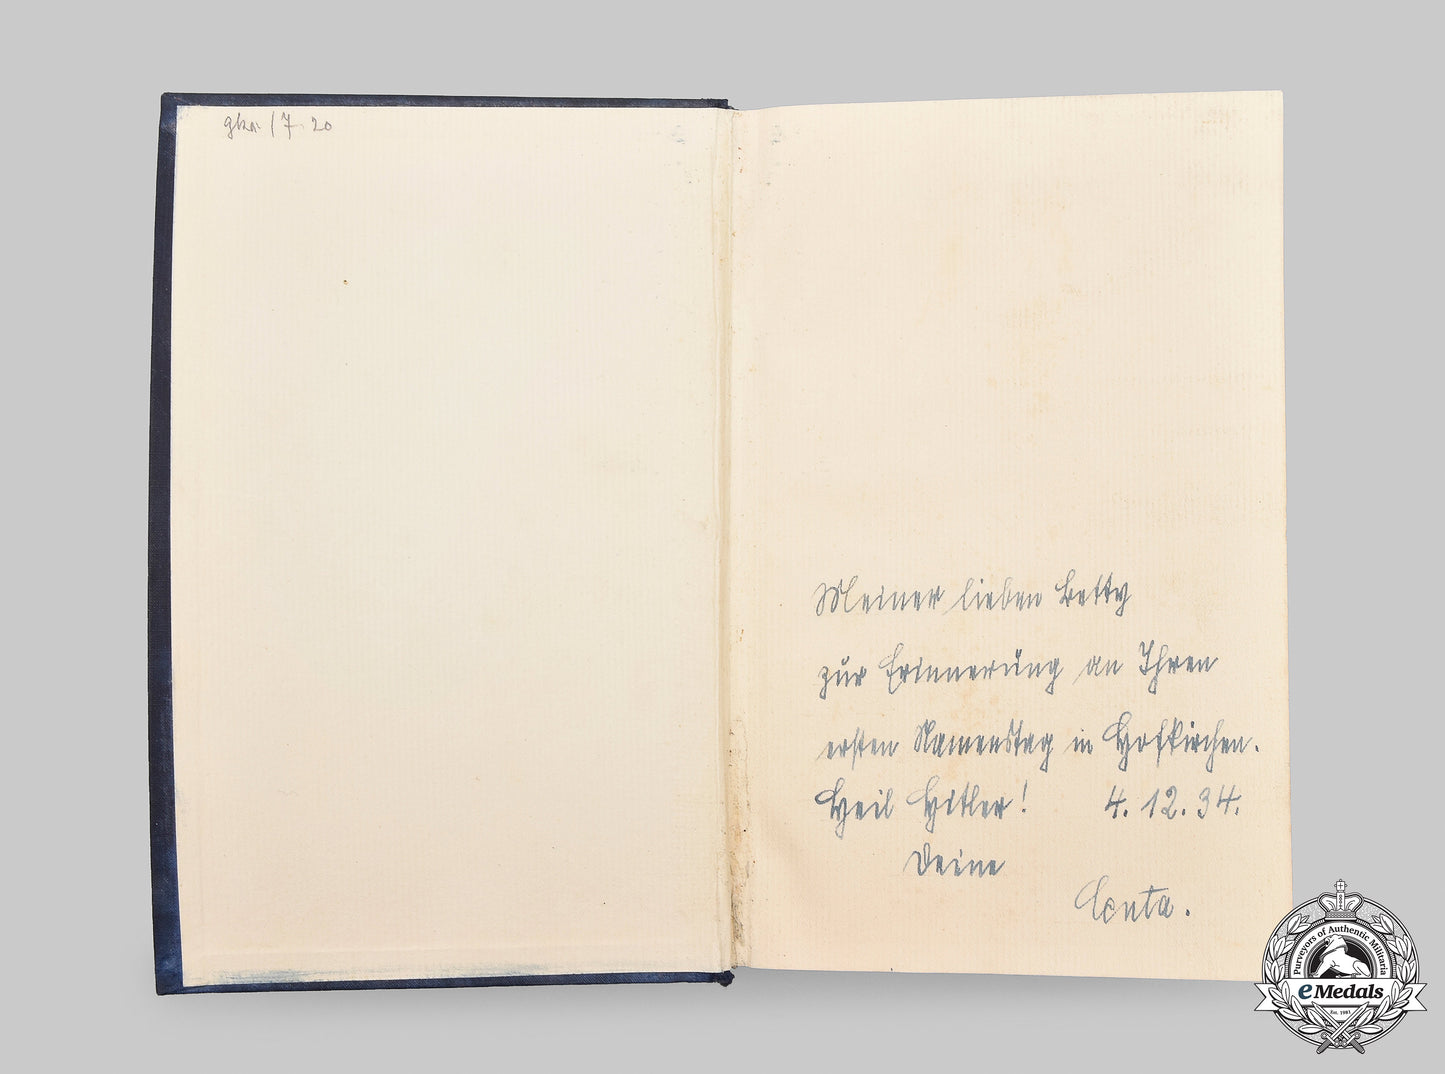 / 7. 20
Meiner lieben Betty
zur Erinnerung an Ihren
ersten Namenstag in Hofkirchen.
Heil Hitler! 4. 12. 34.
Deine
Centa.
Purveyors of Authentic Militaria
eMedals
Est. 1981